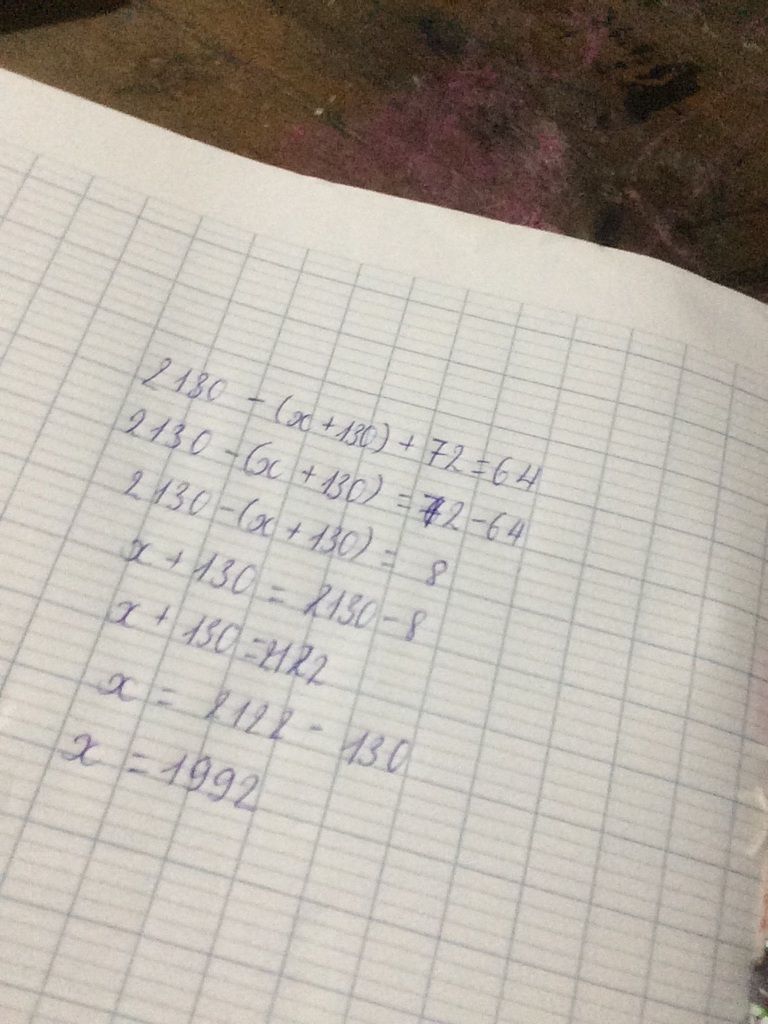 2130 - (x + 130) + 72 = 64
2130 - (x + 130) = 72 - 64
2130 - (x + 130) = 8
x + 130 = 2130 - 8
x + 130 = 2122
x = 2122 - 130
x = 1992